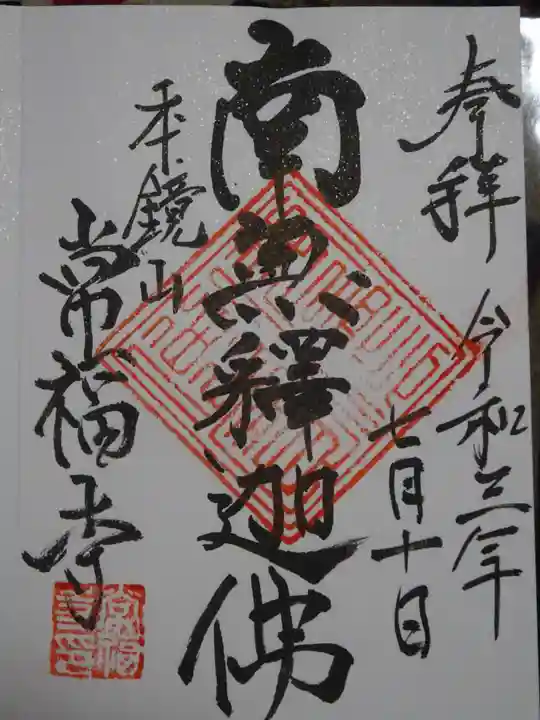 奉拜
令和三年
七月十日
南無釋迦佛
本鏡山
常福寺